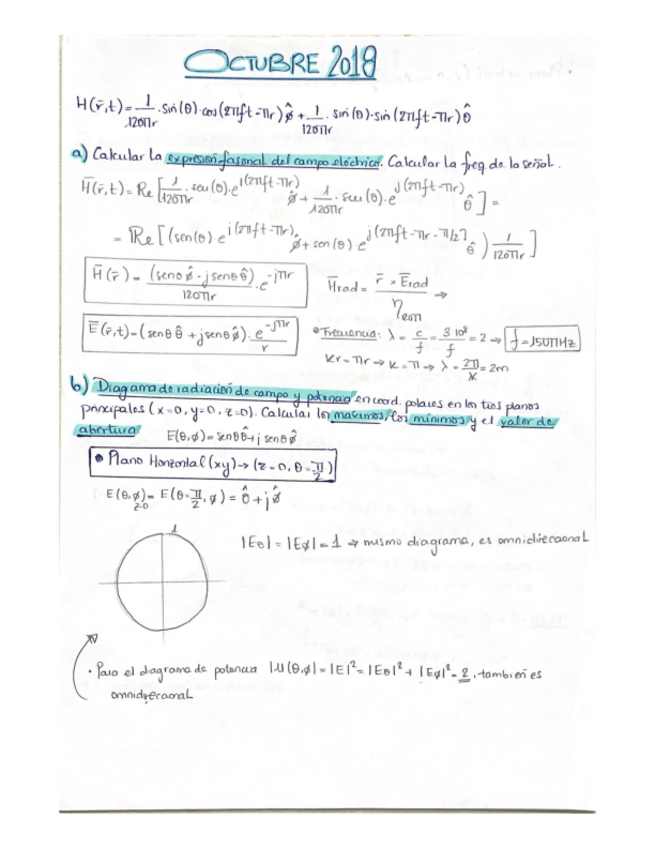 OCTUBRE 2018
H(r̄,t) = 1/120πr · sin(θ)·cos(2πft-πr) φ̂ + 1/120πr · sin(θ)·sin(2πft-πr) θ̂
a) Calcular la expresión fasorial del campo eléctrico. Calcular la freq de la señal.
H̄(r̄,t) = Re[1/120πr · sen(θ)·e^j(2πft-πr) φ̂ + 1/120πr · sen(θ)·e^j(2πft-πr) θ̂] =
= Re[(sen(θ) e^j(2πft-πr) φ̂ + sen(θ) e^j(2πft-πr-π/2) θ̂) 1/120πr]
H̄(r̄) = (senθ φ̂ - j senθ θ̂)/120πr · e^-jπr
H̄rad = r̄ × Ērad / η →
Ē(r̄,t) = (senθ θ̂ + j senθ φ̂) · e^-jπr / r
• Frecuencia: λ = c/f = 3·10⁸/f = 2 → f = 150MHz
Kr = πr → K = π → λ = 2π/K = 2m
b) Diagrama de radiación de campo y potencia en coord. polares en los tres planos
principales (x=0, y=0, z=0). Calcular los máximos, los mínimos y el valor de
abertura
E(θ,φ) = senθ θ̂ + j senθ φ̂
• Plano Horizontal (xy) → (z=0, θ=π/2)
E(θ,φ) z=0 = E(θ=π/2, φ) = θ̂ + j φ̂
1
|Eθ| = |Eφ| = 1 → mismo diagrama, es omnidireccional
· Para el diagrama de potencia |U(θ,φ)| = |E|² = |Eθ|² + |Eφ|² = 2, también es
omnidireccional